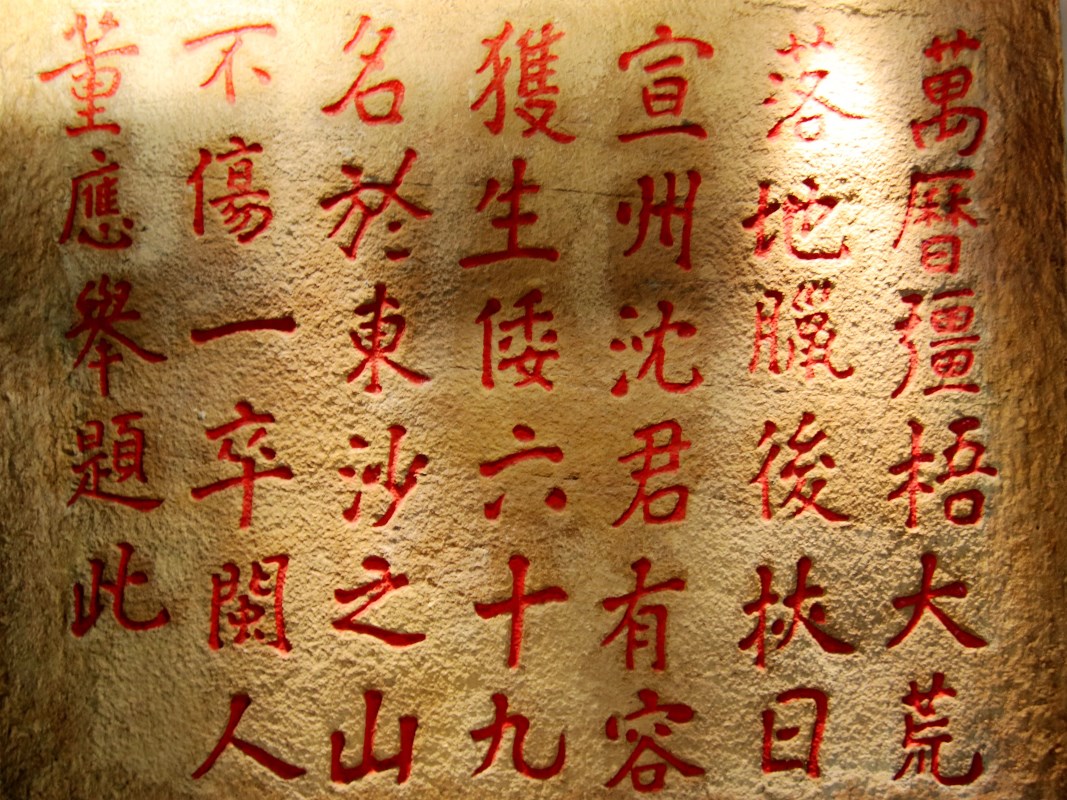 萬曆彊梧大荒
落地臘後挾日
宣州沈君有容
獲生倭六十九
名於東沙之山
不傷一卒閩人
董應舉題此